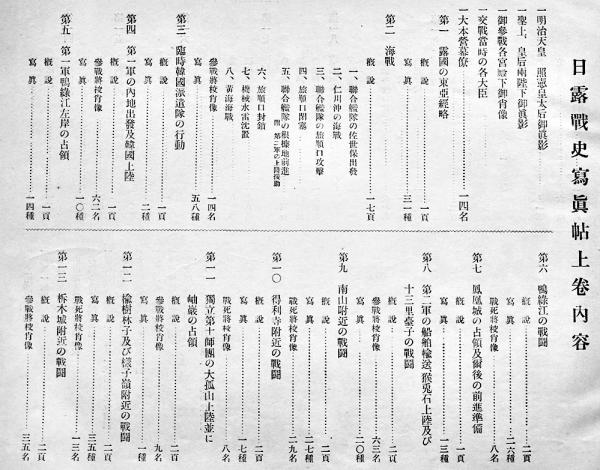 日露戰史寫眞帖上卷內容
一明治天皇　照憲皇太后御眞影
一聖上、皇后兩陛下御眞影
一御參戰各宮殿下御肖像
一交戰當時の各大臣
一大本營幕僚……一四名
第一　露國の東亞經略
概說……一頁
寫眞……三一種
第二　海戰
概說……一七頁
一、聯合艦隊の佐世保出發
二、仁川沖の海戰
三、聯合艦隊の旅順口攻擊
四、旅順口閉塞
五、聯合艦隊の根據地前進
附　第二軍の上陸援助
六、旅順口封鎖
七、機械水雷沈置
八、黃海海戰
參戰將校肖像……一四名
寫眞……五八種
第三　臨時韓國派遣隊の行動
概說……一頁
寫眞……二種
第四　第一軍の內地出發及韓國上陸
概說……一頁
參戰將校肖像……六二名
寫眞……一〇種
第五　第一軍鴨綠江左岸の占領
概說……一頁
寫眞……一四種
第六　鴨綠江の戰鬪
概說……二頁
寫眞……二六種
戰死將校肖像……八名
第七　鳳凰城の占領及爾後の前進準備
概說……一頁
寫眞……一三種
第八　第二軍の船舶輸送、猴兎石上陸及び
十三里臺子の戰鬪
概說……二頁
參戰將校肖像……六三名
寫眞……二〇種
第九　南山附近の戰鬪
概說……二頁
寫眞……二七種
戰死將校肖像……二九名
第一〇　得利寺附近の戰鬪
概說……二頁
寫眞……一七種
戰死將校肖像……八名
第一一　獨立第十師團の大孤山上陸並に
岫巖の占領
概說……二頁
參戰將校肖像……九名
寫眞……一種
第一二　楡樹林子及び樣子嶺附近の戰鬪
概說……二頁
寫眞……三五種
戰死將校肖像……一三名
第一三　柝木城附近の戰鬪
概說……二頁
參戰將校肖像……三五名